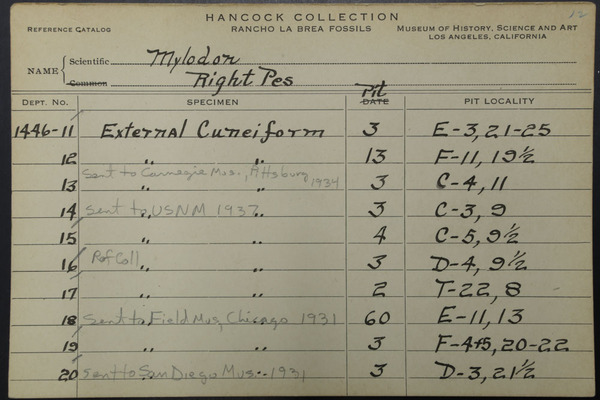 12
HANCOCK COLLECTION
REFERENCE CATALOG RANCHO LA BREA FOSSILS MUSEUM OF HISTORY, SCIENCE AND ART
LOS ANGELES, CALIFORNIA
NAME Scientific Mylodon
Common Right Pes
Pit
DEPT. NO. SPECIMEN DATE PIT LOCALITY
1446-11 External Cuneiform 3 E-3, 21-25
12 " " 13 F-11, 19½
13 Sent to Carnegie Mus., Pittsburg 1934 3 C-4, 11
14 Sent to USNM 1937 " 3 C-3, 9
15 " " 4 C-5, 9½
16 Ref Coll " " 3 D-4, 9½
17 " " 2 T-22, 8
18 Sent to Field Mus, Chicago 1931 60 E-11, 13
19 " " 3 F-4+5, 20-22
20 Sent to San Diego Mus. " 1931 3 D-3, 21½